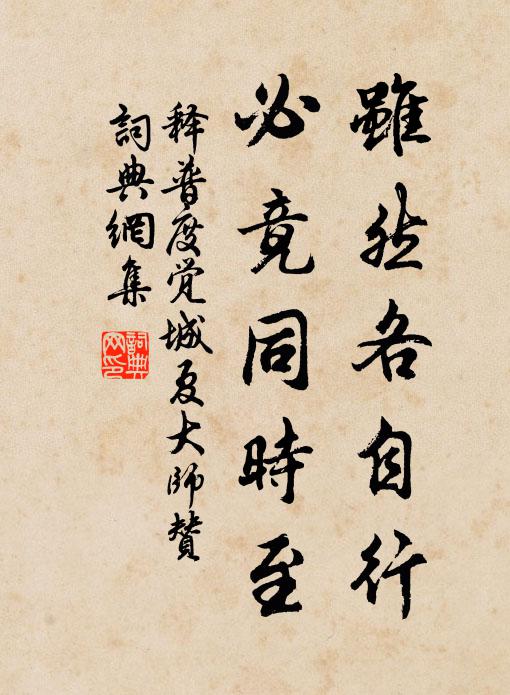 雖然各自行
必竟同時至
释普度觉城夏大師贊
詞典網集
詞典
网印